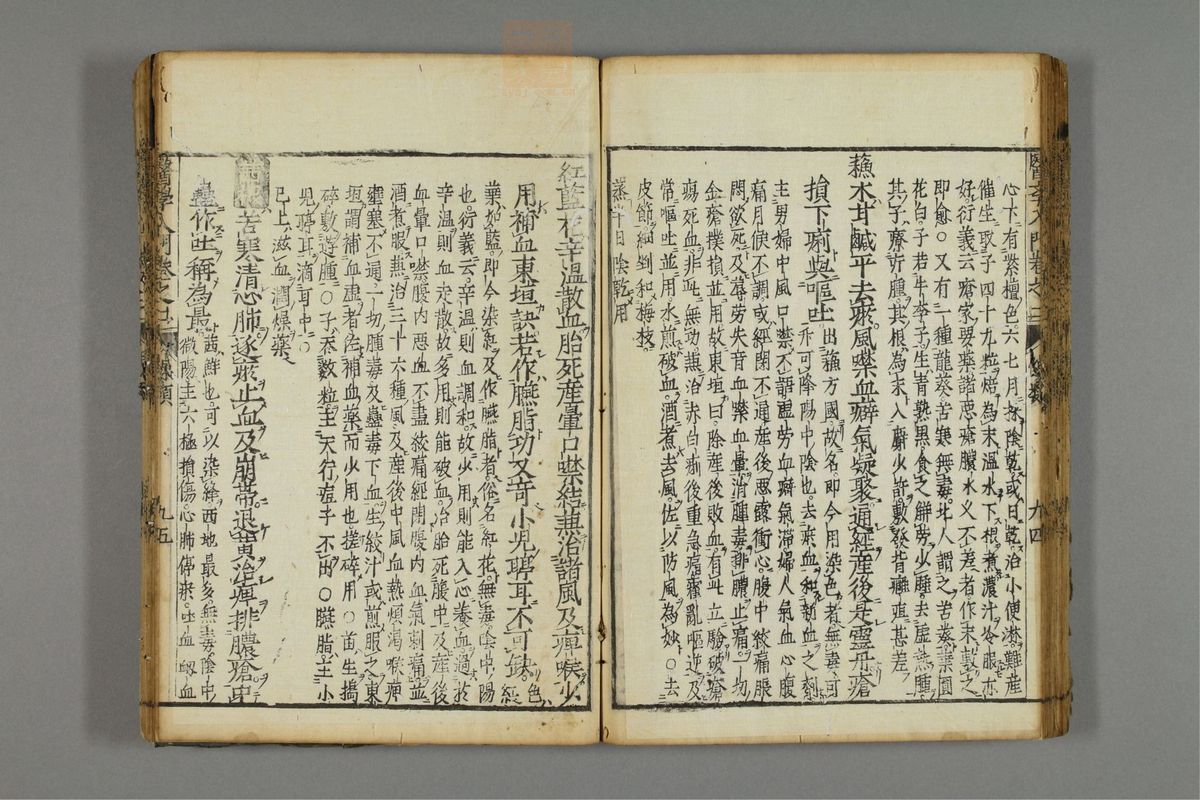 心下有紫檀色六七月採陰乾或日乾治小便淋難産
催生取子四十九粒焙為末温水下根煮濃汁冷服亦
好衍義云瘡家要藥諸悪瘡膿水乂不差者作末敷之
即愈○又有一種龍葵苦寒無毒北人謂之苦葵葉圓
花白子若牛李子生青熟黒食之觧労少睡去虚熱腫
其子療疔腫其根為末入麝火皆敷發背癰疽甚差
蘓木甘鹹平去瘀風噤血癖氣凝聚通經産後是霊丹瘡
損下痢與嘔吐
出蘓方國故名即今用染色者無毒可
升可降陽中陰也去瘀血和新血之剤
主男婦中風口禁不語虚労血癖氣滯婦人氣血心腹
痛月使不調或經閉不通産後悪露衝心腹中絞痛脹
悶欲死及蓐労失音血禁血暈消腫毒排膿止痛一切
金瘡撲損並用故東垣曰除産後敗血有此立驗破瘡
瘍死血非此無功燕治赤白痢後重急痛霍亂嘔逆及
常嘔吐並用水煎破血酒煮去風佐以防風為妙○去
皮節細剉和梅枝
蒸半日陰乾用
紅藍花辛温散血胎死産暈口禁結兼治諸風及痺喉少
用補血東垣訣若作臙脂功又竒小児聤耳不可缺
色紅
葉如藍即今染紅及作臙脂者俗名紅花無毒陰中陽
也衍義云辛温則血調和故少用則能入心養血過於
辛温則血走散故多用則能破血治胎死腹中及産後
血暈口噤腹内悪血不盡絞痛經閉腹内血氣刺痛並
酒煮服燕治三十六種風及産後中風血熱煩渇喉痺
壅塞不通一切腫毒及蠱毒下血生絞汁或煎服之東
垣謂補血虚者佐補血藥而少用也搓碎用○苗生搗
碎敷遊腫○子呑数粒主天行痘子不出○臙脂主小
児聤耳滴耳中○
已上滋血潤燥藥
茜根苦寒清心肺逐瘀止血及崩帯退黄治痺排膿瘡中
蠱作吐稱為最
茜鮮也可以染絳西地最多無毒陰中
微陽主六極損傷心肺停瘀吐血衂血